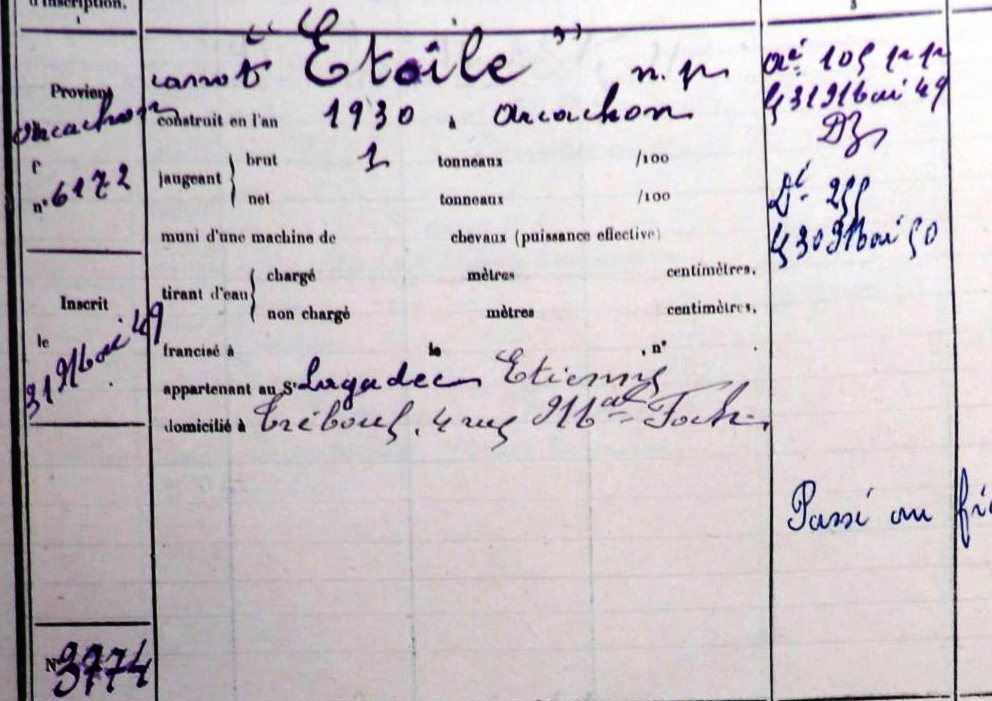 d'inscription.
Provient
Arcachon
n° 6172
Inscrit
le
31 Mai 49
N° 3774
canot "Etoile" n.p.
construit en l'an 1930 à Arcachon
jaugeant
brut 1 tonneaux /100
net tonneaux /100
muni d'une machine de chevaux (puissance effective)
tirant d'eau
chargé mètres centimètres.
non chargé mètres centimètres.
francisé à le , n°
appartenant au Sr Lagadec Etienne
domicilié à Tréboul, 4 rue Mal Foch
3
105
31 Mai 49
Dz
255
30 Mai 50
Passé au